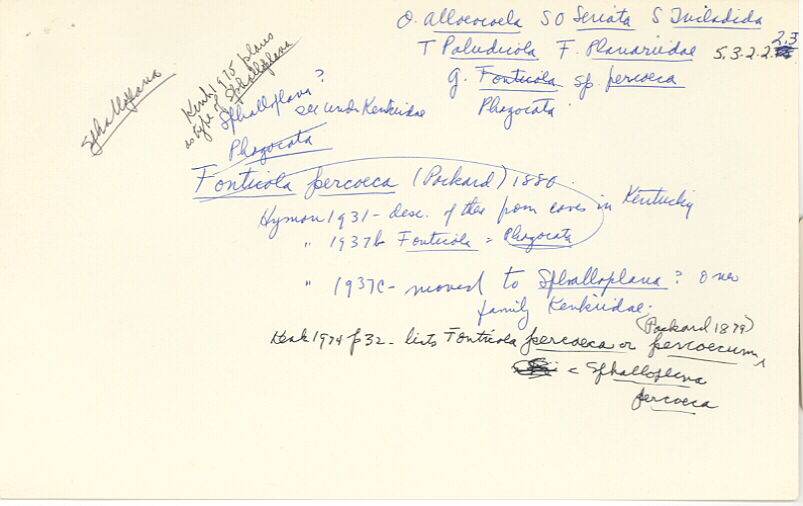 O. Alloeocoela SO Seriata S Tricladida
T Paludicola F. Planariidae 5.3.2.2. 2.3
G. Fonticola sp. percoeca
Phagocata
Sphalloplana
Kenk 1975 places
as type of Sphalloplana
Sphalloplana?
see under Kenkiidae
Phagocata
Fonticola percoeca (Packard) 1880.
Hyman 1931 - desc. of this from caves in Kentucky
" 1937b Fonticola = Phagocata
" 1937c - moved to Sphalloplana? & new
family Kenkiidae.
(Packard 1879)
Kenk 1974 p32 - lists Fonticola percoeca or percoecum,
= Sphalloplana
percoeca